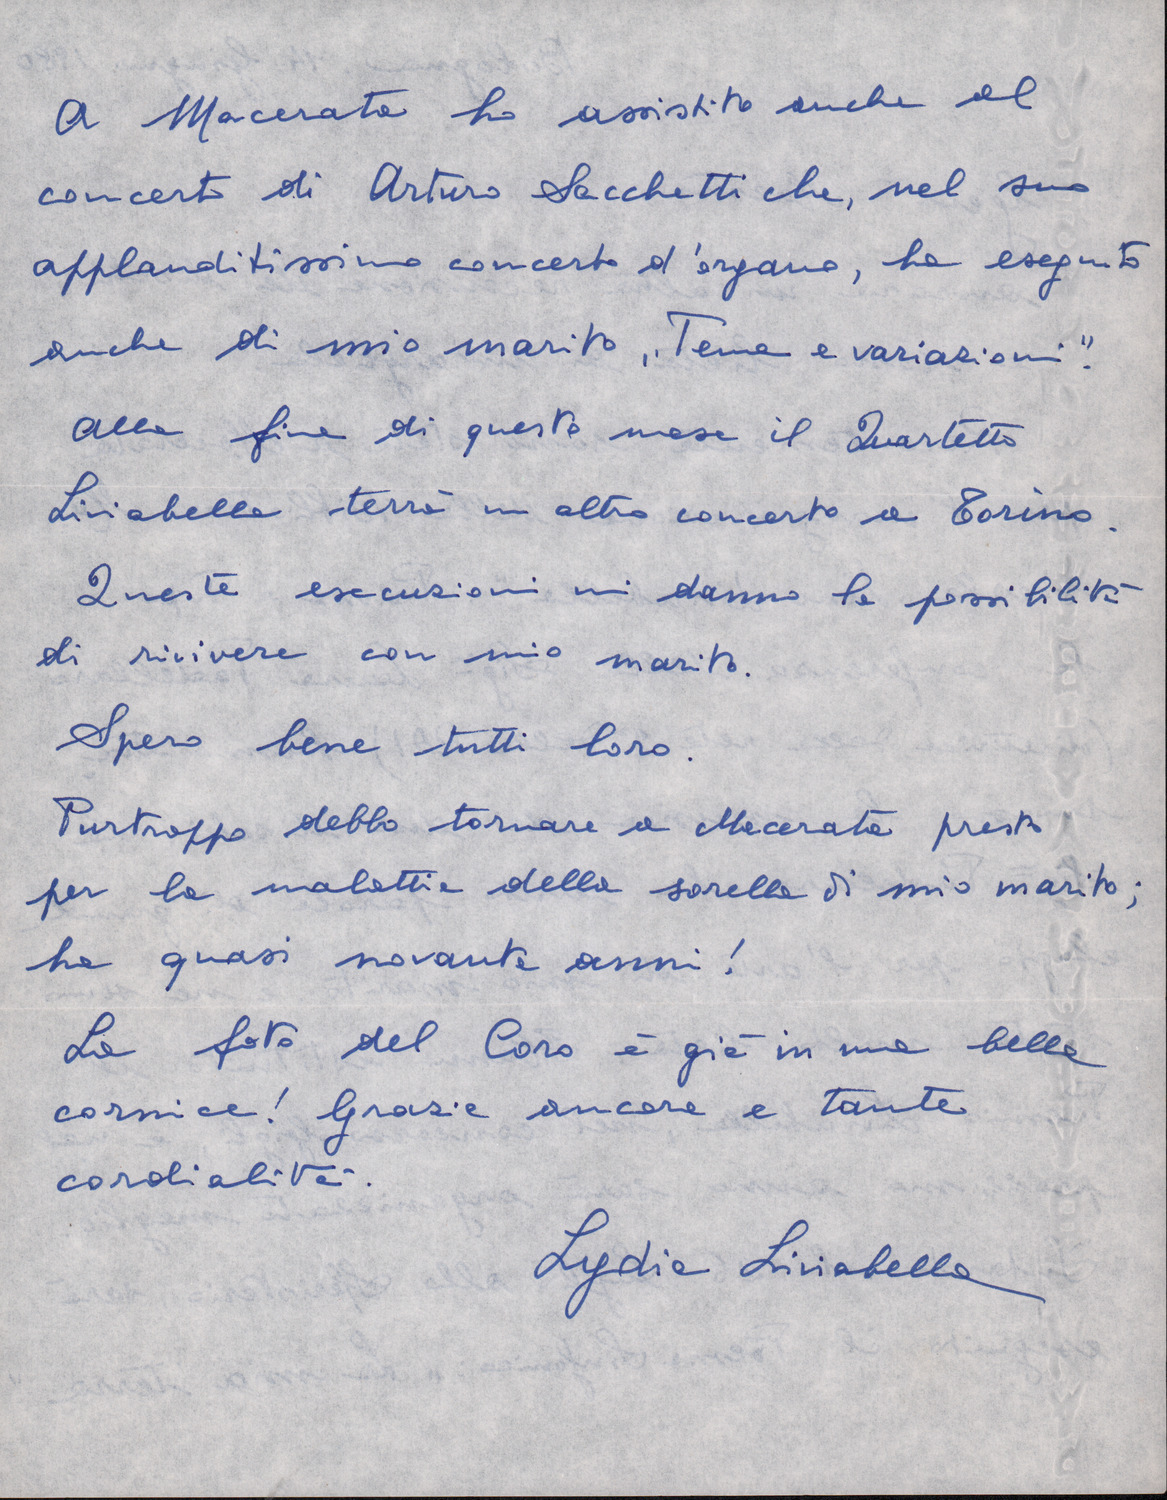 A Macerata ho assistito anche al
concerto di Arturo Sacchetti che, nel suo
applauditissimo concerto d'organo, ha eseguito
anche di mio marito „Tema e variazioni".
Alla fine di questo mese il Quartetto
Liviabella terrà un altro concerto a Torino.
Queste esecuzioni mi danno la possibilità
di rivivere con mio marito.
Spero bene tutti loro.
Purtroppo debbo tornare a Macerata presto
per la malattia della sorella di mio marito;
ha quasi novanta anni!
La foto del Coro è già in una bella
cornice! Grazie ancora e tante
cordialità.
Lydia Liviabella